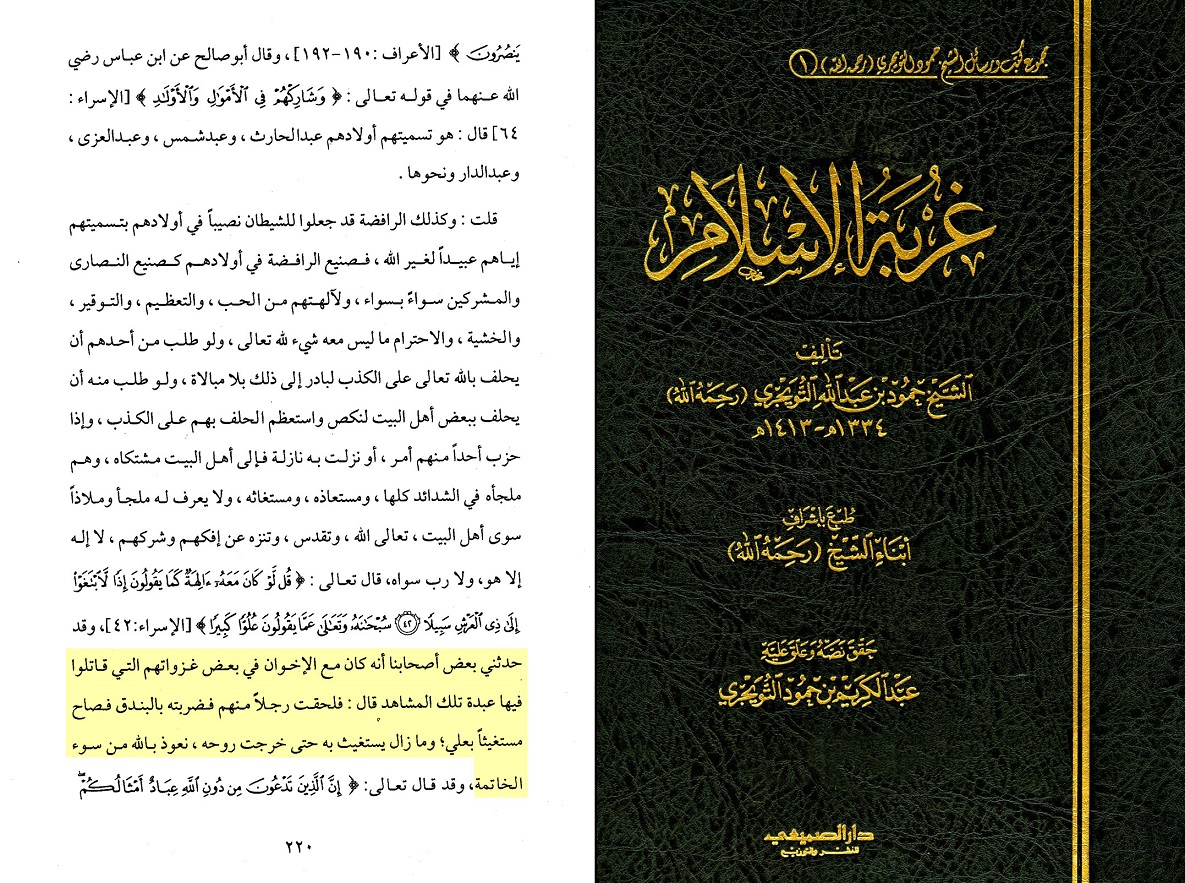 ينصرون ﴾ [الأعراف : ١٩٠-١٩٢] ، وقال أبو صالح عن ابن عباس رضي
الله عنهما في قوله تعالى : ﴿ وَشَارِكْهُمْ فِي الْأَمْوَالِ وَالْأَوْلَادِ ﴾ [الإسراء :
٦٤] قال : هو تسميتهم أولادهم عبدالحارث ، وعبدشمس ، وعبدالعزى ،
وعبدالدار ونحوها .
قلت : وكذلك الرافضة قد جعلوا للشيطان نصيباً في أولادهم بتسميتهم
إياهم عبيداً لغير الله ، فصنيع الرافضة في أولادهم كصنيع النصارى
والمشركين سواءً بسواء ، ولآلهتهم من الحب ، والتعظيم ، والتوقير ،
والخشية ، والاحترام ما ليس معه شيء لله تعالى ، ولو طلب من أحدهم أن
يحلف بالله تعالى على الكذب لبادر إلى ذلك بلا مبالاة ، ولو طلب منه أن
يحلف ببعض أهل البيت لنكص واستعظم الحلف بهم على الكذب ، وإذا
حزب أحداً منهم أمر ، أو نزلت به نازلة فإلى أهل البيت مشتكاه ، وهم
ملجأه في الشدائد كلها ، ومستعاذه ، ومستغاثه ، ولا يعرف له ملجأ وملاذاً
سوى أهل البيت ، تعالى الله ، وتقدس ، وتنزه عن إفكهم وشركهم ، لا إله
إلا هو، ولا رب سواه، قال تعالى : ﴿ قُل لَّوْ كَانَ مَعَهُۥٓ ءَالِهَةٌ كَمَا يَقُولُونَ إِذًا لَّٱبْتَغَوْا۟
إِلَىٰ ذِى ٱلْعَرْشِ سَبِيلًا ۝٤٢ سُبْحَٰنَهُۥ وَتَعَٰلَىٰ عَمَّا يَقُولُونَ عُلُوًّا كَبِيرًا ﴾ [الإسراء:٤٢]، وقد
حدثني بعض أصحابنا أنه كان مع الإخوان في بعض غزواتهم التي قاتلوا
فيها عبدة تلك المشاهد قال : فلحقت رجلاً منهم فضربته بالبندق فصاح
مستغيثاً بعلي؛ وما زال يستغيث به حتى خرجت روحه ، نعوذ بالله من سوء
الخاتمة، وقد قال تعالى: ﴿ إِنَّ ٱلَّذِينَ تَدْعُونَ مِن دُونِ ٱللَّهِ عِبَادٌ أَمْثَالُكُمْ ۖ
٢٢٠
مجموع كتب ورسائل الشيخ حمود التويجري (رحمه الله) (١)
غُرْبَةُ الإِسْلَامِ
تأليف
الشيخ حمود بن عبدالله التويجري (رحمه الله)
١٣٣٤هـ-١٤١٣هـ
طبع بإشراف
أبناء الشيخ (رحمه الله)
حقق نصه وعلق عليه
عبدالكريم بن حمود التويجري
دار الصميعي
للنشر والتوزيع